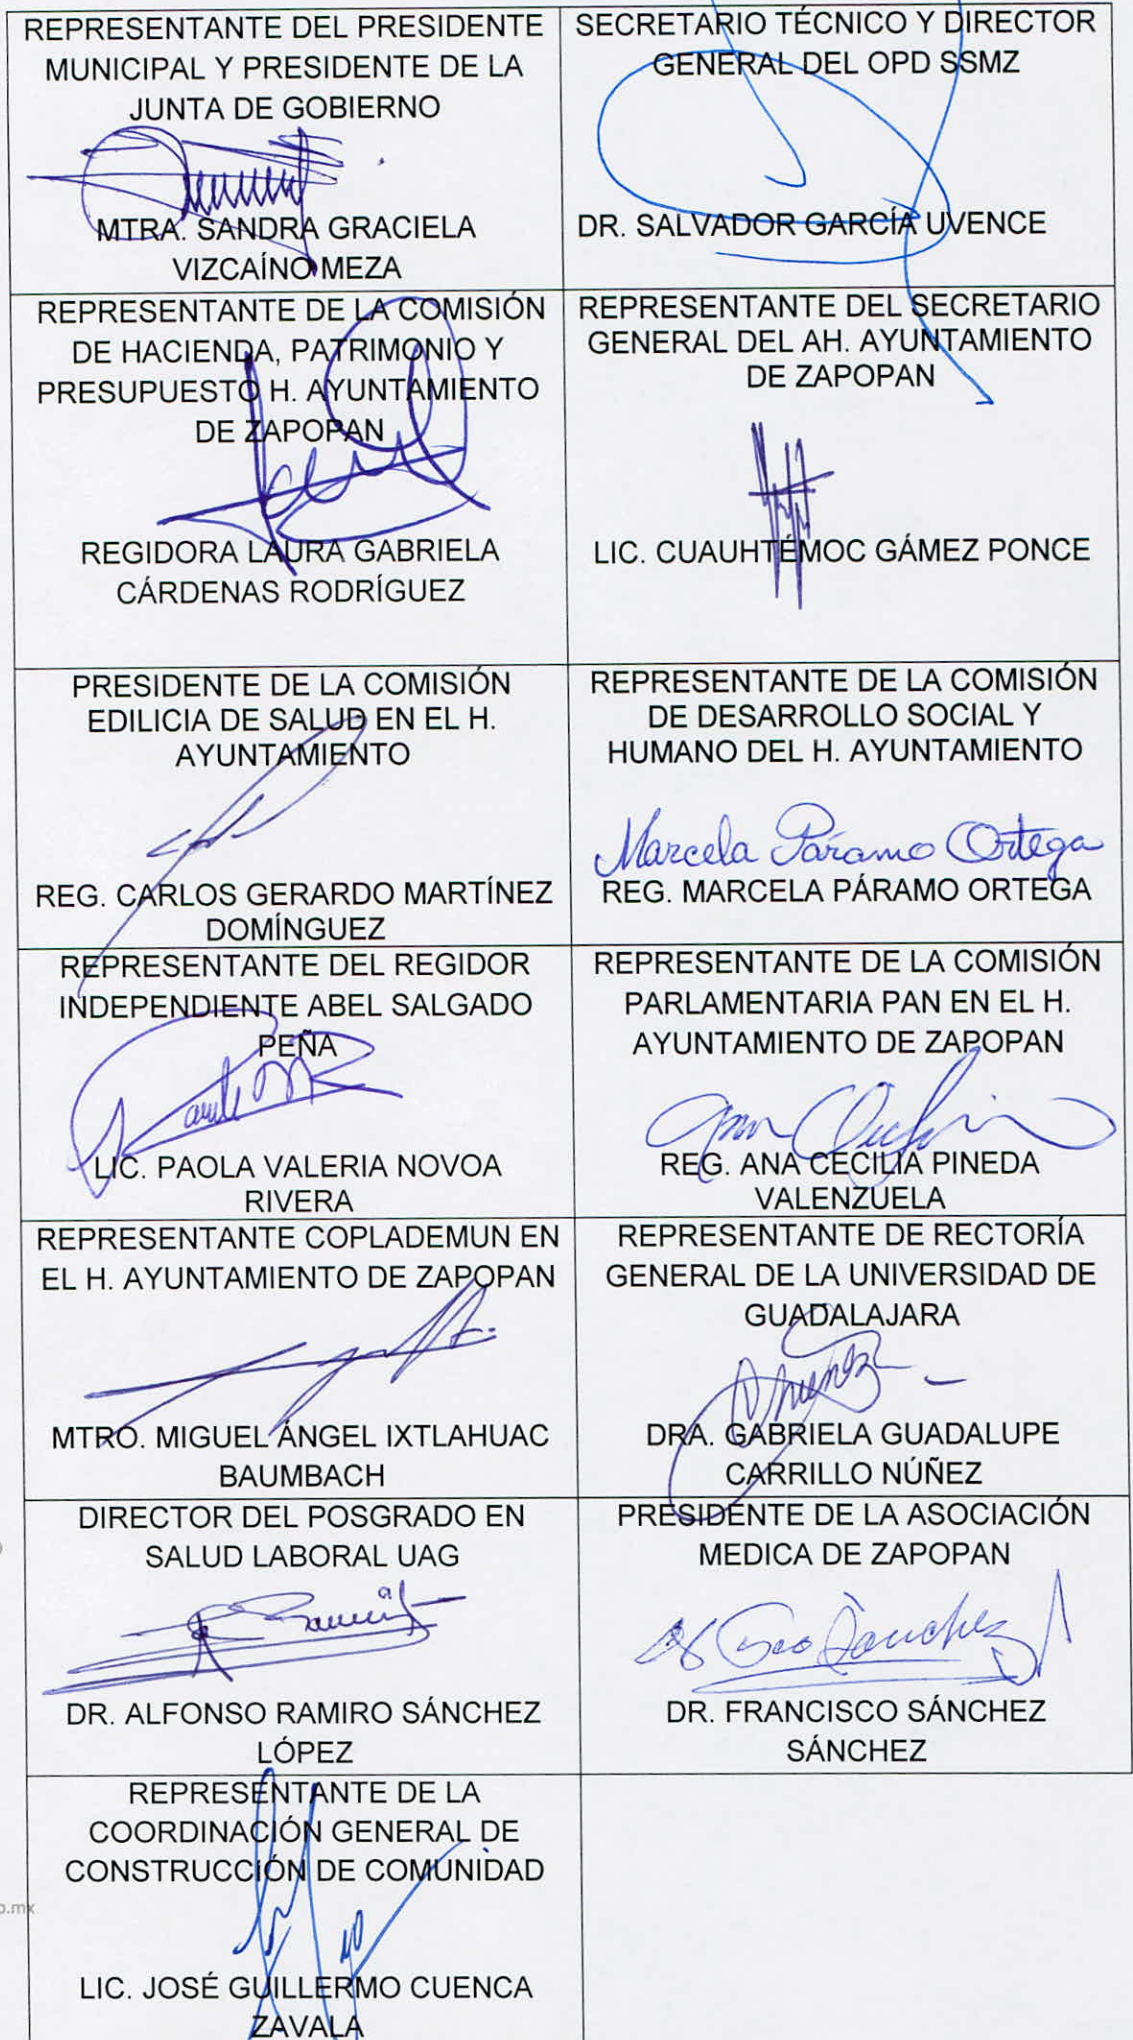 REPRESENTANTE DEL PRESIDENTE
MUNICIPAL Y PRESIDENTE DE LA
JUNTA DE GOBIERNO
MTRA. SANDRA GRACIELA
VIZCAÍNO MEZA
SECRETARIO TÉCNICO Y DIRECTOR
GENERAL DEL OPD SSMZ
DR. SALVADOR GARCÍA UVENCE
REPRESENTANTE DE LA COMISIÓN
DE HACIENDA, PATRIMONIO Y
PRESUPUESTO H. AYUNTAMIENTO
DE ZAPOPAN
REGIDORA LAURA GABRIELA
CÁRDENAS RODRÍGUEZ
REPRESENTANTE DEL SECRETARIO
GENERAL DEL AH. AYUNTAMIENTO
DE ZAPOPAN
LIC. CUAUHTÉMOC GÁMEZ PONCE
PRESIDENTE DE LA COMISIÓN
EDILICIA DE SALUD EN EL H.
AYUNTAMIENTO
REG. CARLOS GERARDO MARTÍNEZ
DOMÍNGUEZ
REPRESENTANTE DE LA COMISIÓN
DE DESARROLLO SOCIAL Y
HUMANO DEL H. AYUNTAMIENTO
Marcela Páramo Ortega
REG. MARCELA PÁRAMO ORTEGA
REPRESENTANTE DEL REGIDOR
INDEPENDIENTE ABEL SALGADO
PEÑA
LIC. PAOLA VALERIA NOVOA
RIVERA
REPRESENTANTE DE LA COMISIÓN
PARLAMENTARIA PAN EN EL H.
AYUNTAMIENTO DE ZAPOPAN
REG. ANA CECILIA PINEDA
VALENZUELA
REPRESENTANTE COPLADEMUN EN
EL H. AYUNTAMIENTO DE ZAPOPAN
MTRO. MIGUEL ÁNGEL IXTLAHUAC
BAUMBACH
REPRESENTANTE DE RECTORÍA
GENERAL DE LA UNIVERSIDAD DE
GUADALAJARA
DRA. GABRIELA GUADALUPE
CARRILLO NÚÑEZ
DIRECTOR DEL POSGRADO EN
SALUD LABORAL UAG
DR. ALFONSO RAMIRO SÁNCHEZ
LÓPEZ
PRESIDENTE DE LA ASOCIACIÓN
MEDICA DE ZAPOPAN
Sánchez
DR. FRANCISCO SÁNCHEZ
SÁNCHEZ
REPRESENTANTE DE LA
COORDINACIÓN GENERAL DE
CONSTRUCCIÓN DE COMUNIDAD
LIC. JOSÉ GUILLERMO CUENCA
ZAVALA
.mx